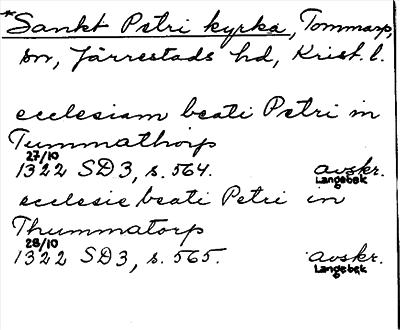 *Sankt Petri kyrka, Tommarp,
sn, Järrestads hd, Krist. l.
ecclesiam beati Petri in
Tummathorp
27/10
1322 SD3, s. 564. avskr.
Langebek
ecclesie beati Petri in
Thummatorp
28/10
1322 SD3, s. 565. avskr.
Langebek